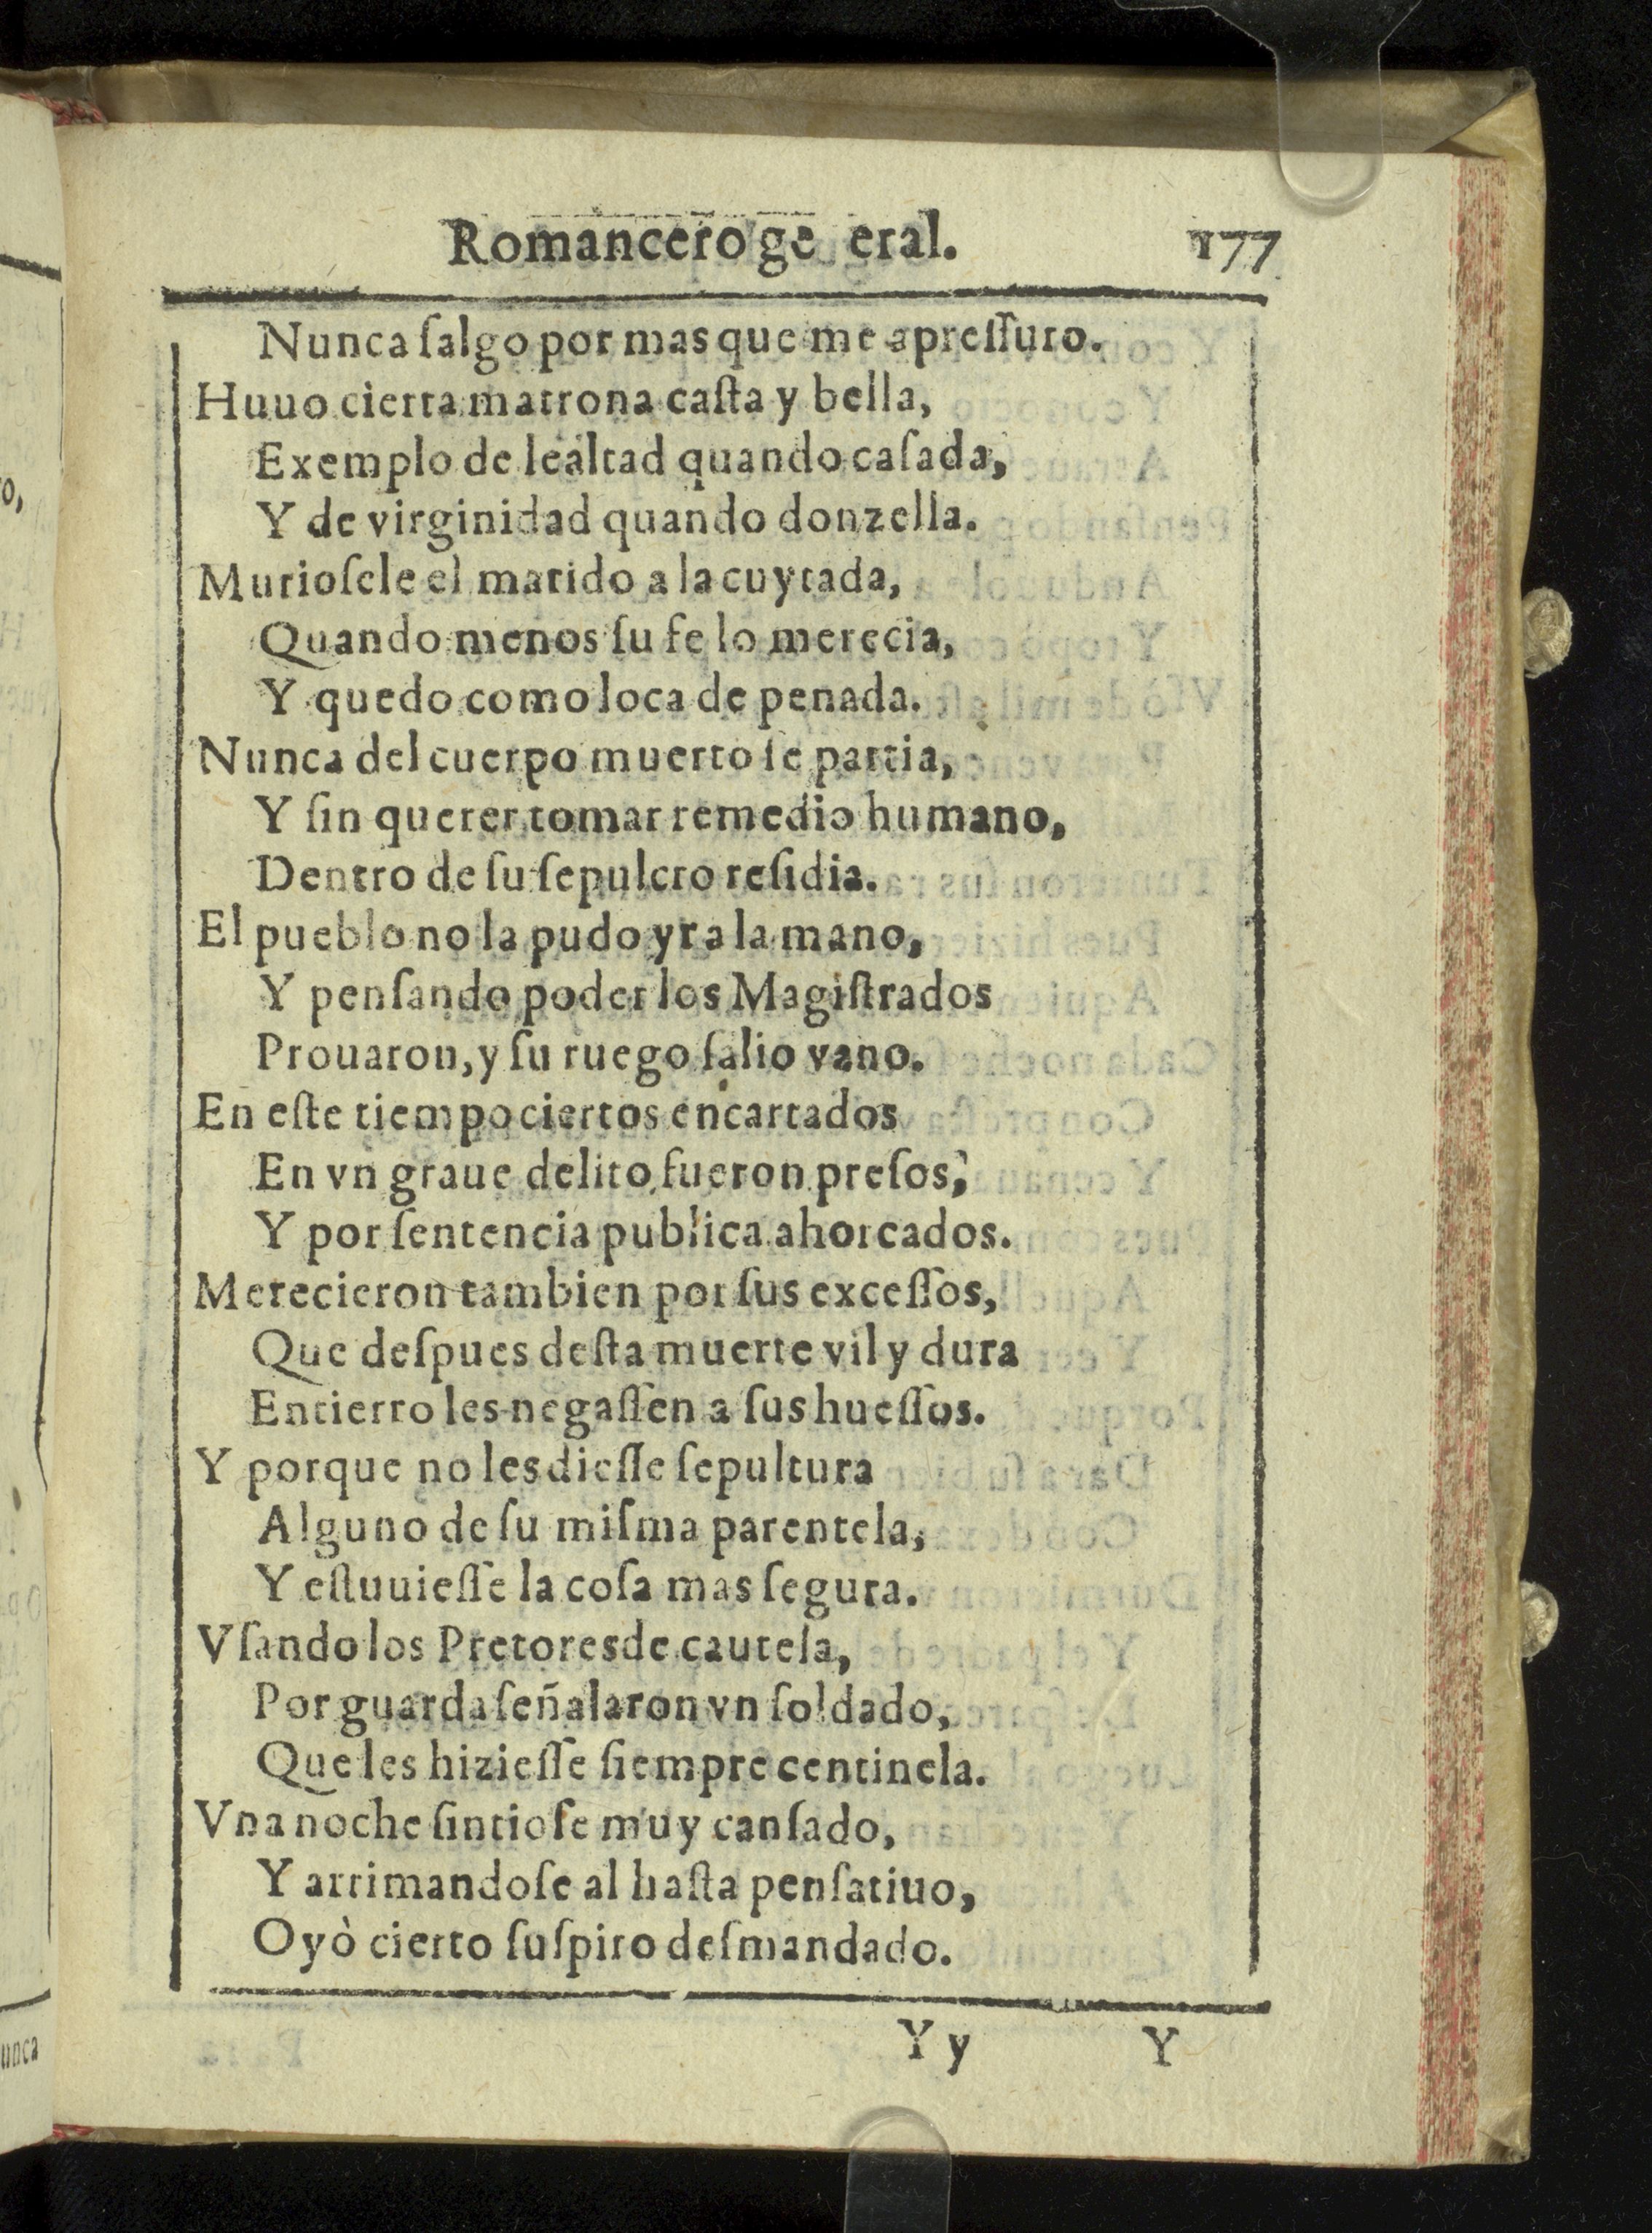 Romancero ge eral. 177
Nunca ſalgo por mas que me apreſſuro.
Huuo cierta matrona caſta y bella,
Exemplo de lealtad quando caſada,
Y de virginidad quando donzella.
Murioſele el marido a la cuytada,
Quando menos ſu fe lo merecia,
Y quedo como loca de penada.
Nunca del cuerpo muerto ſe partia,
Y ſin querer tomar remedio humano,
Dentro de ſu ſepulcro reſidia.
El pueblo no la pudo yr a la mano,
Y penſando poder los Magiſtrados
Prouaron, y ſu ruego ſalio vano.
En eſte tiempo ciertos encartados
En vn graue delito fueron preſos,
Y por ſentencia publica ahorcados.
Merecieron tambien por ſus exceſſos,
Que deſpues deſta muerte vil y dura
Entierro les negaſſen a ſus hueſſos.
Y porque no les dieſſe ſepultura
Alguno de ſu miſma parentela,
Y eſtuuieſſe la coſa mas ſegura.
Vſando los Pretores de cautela,
Por guarda ſeñalaron vn ſoldado,
Que les hizieſſe ſiempre centinela.
Vna noche ſintioſe muy canſado,
Y arrimandoſe al haſta penſatiuo,
Oyò cierto ſuſpiro deſmandado.
Yy Y